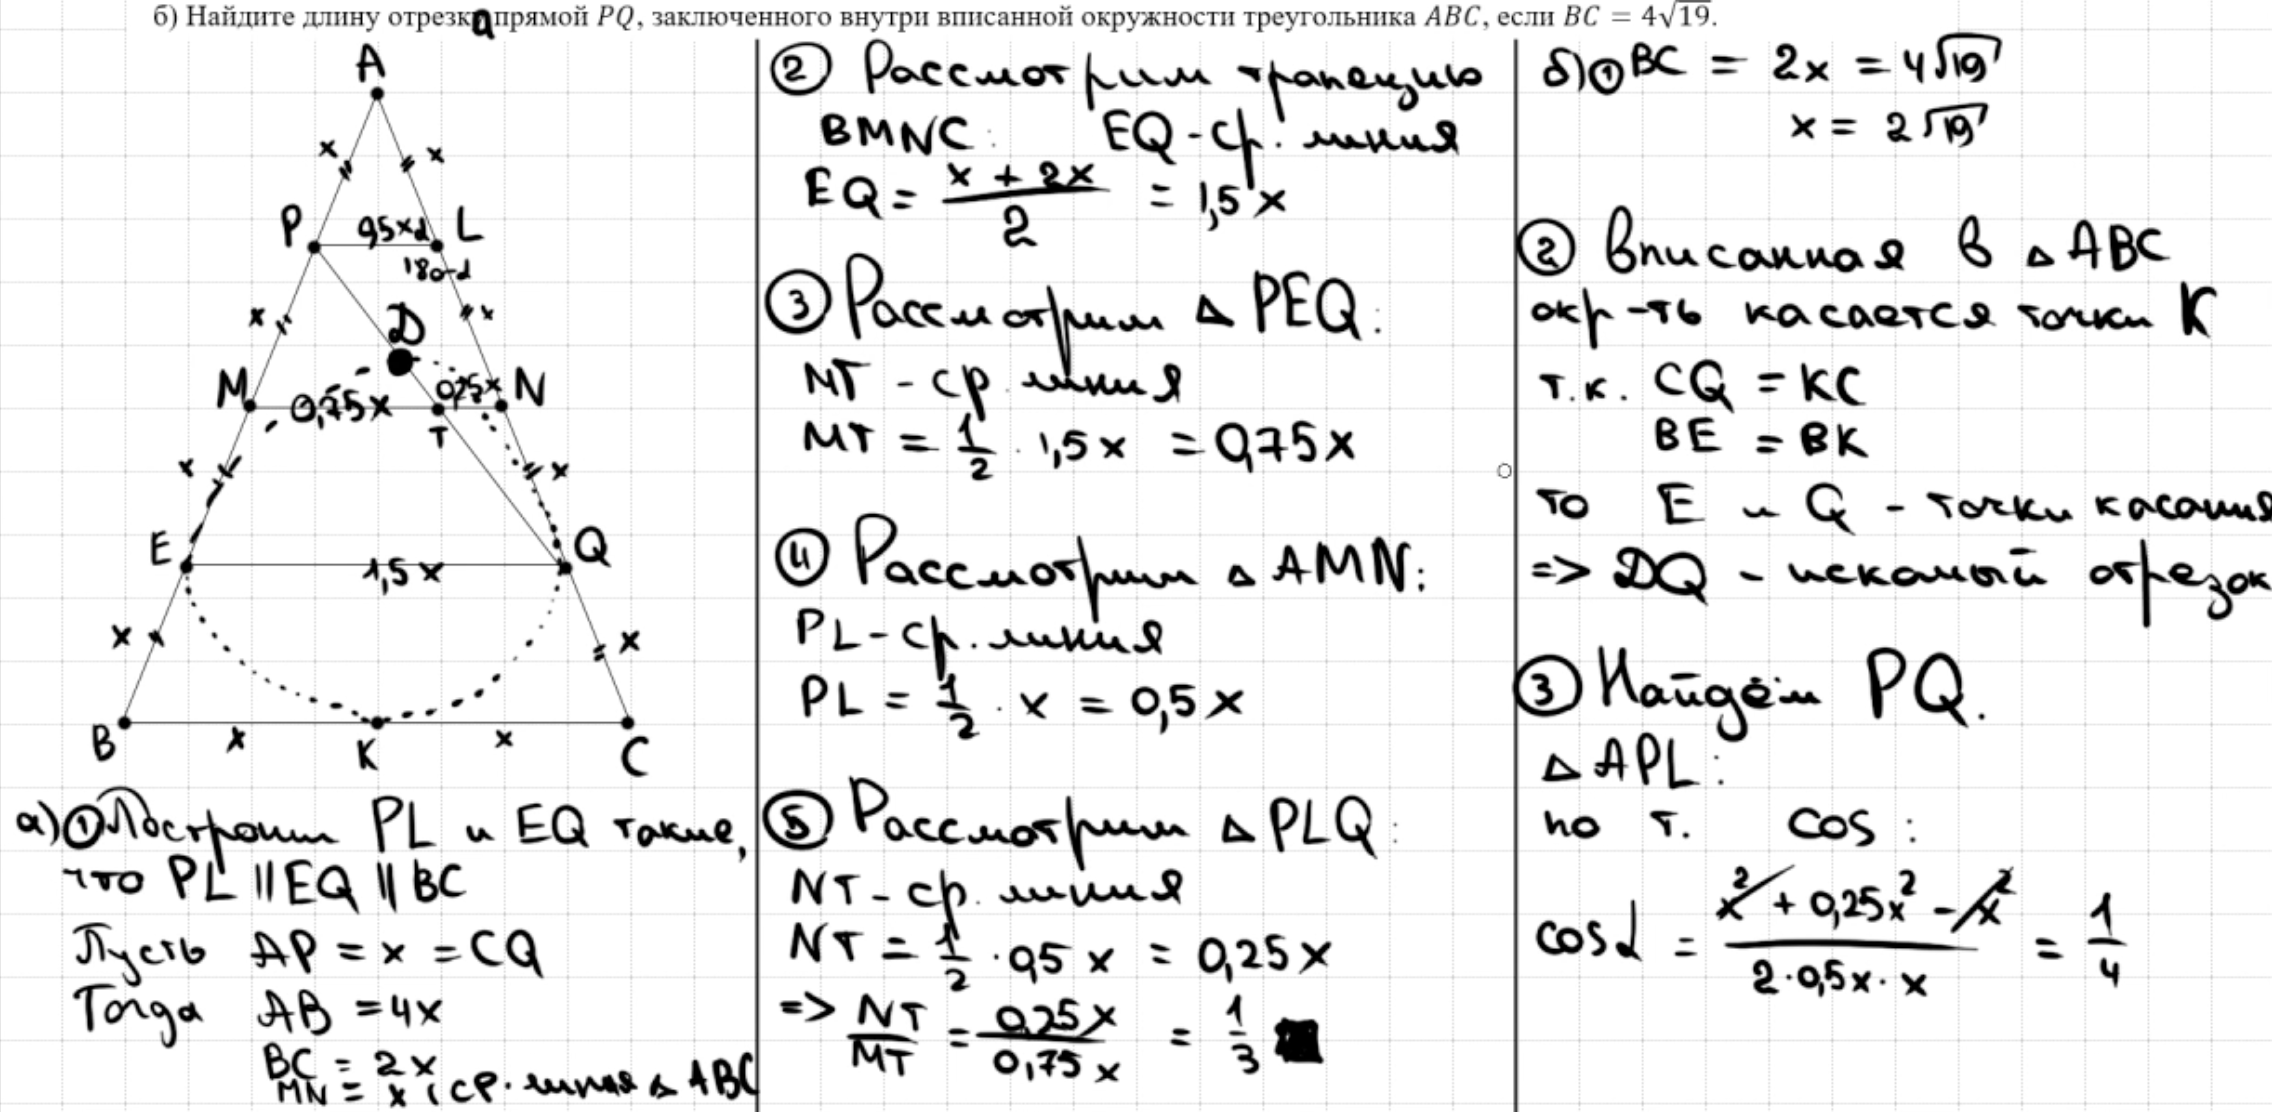 б) Найдите длину отрезка прямой PQ, заключенного внутри вписанной окружности треугольника ABC, если BC = 4√19.
A
x
x
P
0,5x
α
L
180-α
x
x
D
M
0,75x
0,25x
N
T
x
x
E
1,5x
Q
x
x
B
x
K
x
C
а) ① Построим PL и EQ такие,
что PL || EQ || BC
Пусть AP = x = CQ
Тогда AB = 4x
BC = 2x
MN = x (ср. линия △ ABC
② Рассмотрим трапецию
BMNC: EQ - ср. линия
EQ = (x + 2x)/2 = 1,5x
③ Рассмотрим △ PEQ:
NT - ср. линия
MT = 1/2 · 1,5x = 0,75x
④ Рассмотрим △ AMN:
PL - ср. линия
PL = 1/2 · x = 0,5x
⑤ Рассмотрим △ PLQ:
NT - ср. линия
NT = 1/2 · 0,5x = 0,25x
=> NT/MT = 0,25x/0,75x = 1/3
б) ① BC = 2x = 4√19
x = 2√19
② Вписанная в △ ABC
окр-ть касается точки K
т.к. CQ = KC
BE = BK
то E и Q - точки касания
=> DQ - искомый отрезок
③ Найдём PQ.
△ APL:
по т. cos:
cosα = (x² + 0,25x² - x²)/(2·0,5x·x) = 1/4